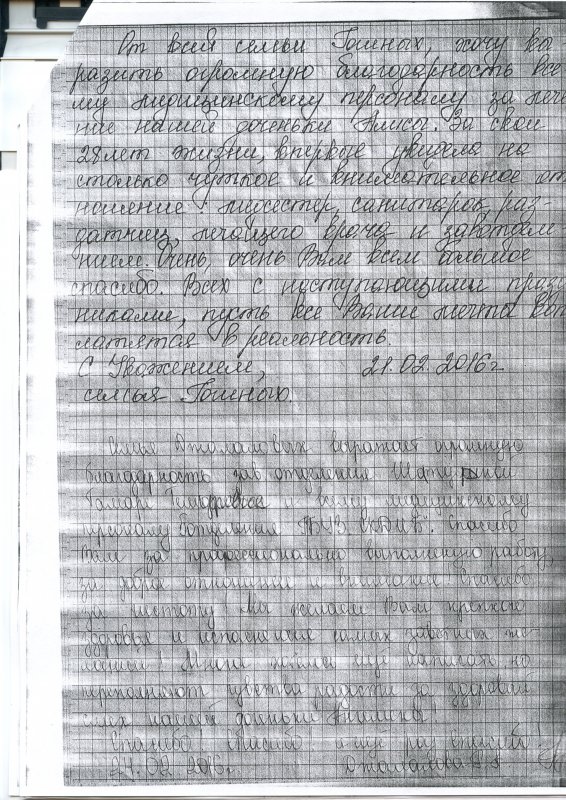 От всей семьи Гошных, хочу вы
разить огромную благодарность все
му медицинскому персоналу за лече
ние нашей доченьки Алисы. За свои
28 лет жизни, впервые увидела на
столько чуткое и внимательное от
ношение: медсестер, санитарок, раз-
датчиц, лечащего врача и завотделе
нием. Очень, очень Вам всем большое
спасибо. Всех с наступающими празд
никами, пусть все Ваши мечты воп
лотятся в реальность.
С Уважением, 21.02.2016г
семья Гошных.
Семья Джаламовых выражает огромную
благодарность зав отделения
Тамаре и всему медицинскому
персоналу отделения ГБУЗ Спасибо
Вам за профессионально выполненную работу,
за добра отношения и внимание! Спасибо
за чистоту! Мы желаем Вам крепкого
здоровья и исполнения самых заветных же-
ланий! Много можно ещё написать но
переполняют чувства радости за здоровий
нашей доченьки
Спасибо! Спасибо! и ещё раз спасибо!
24.02.2016г.